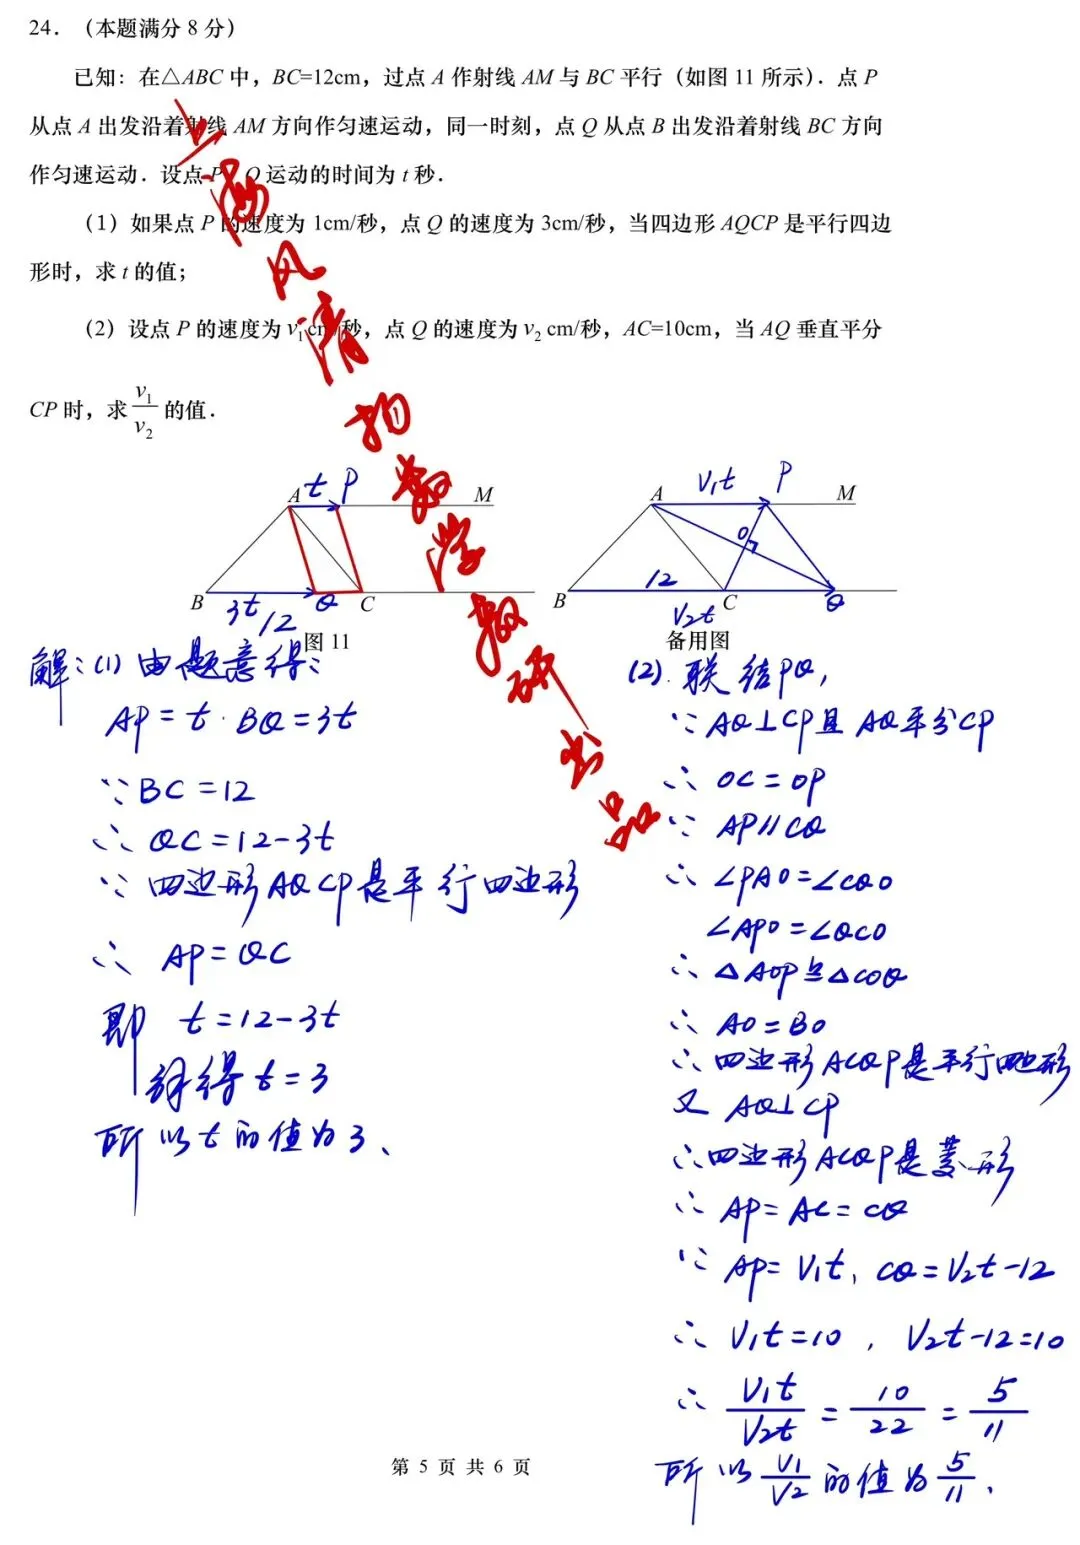 24. (本题满分 8 分)
已知：在△ABC 中，BC=12cm，过点 A 作射线 AM 与 BC 平行（如图 11 所示）. 点 P
从点 A 出发沿着射线 AM 方向作匀速运动，同一时刻，点 Q 从点 B 出发沿着射线 BC 方向
作匀速运动. 设点 P、Q 运动的时间为 t 秒.
（1）如果点 P 的速度为 1cm/秒，点 Q 的速度为 3cm/秒，当四边形 AQCP 是平行四边
形时，求 t 的值；
（2）设点 P 的速度为 v₁ cm/秒，点 Q 的速度为 v₂ cm/秒，AC=10cm，当 AQ 垂直平分
CP 时，求 v₁/v₂ 的值.
上海风清扬数学教研出品
A t P M
B 3t Q C
12
图 11
A V₁t P M
O
B 12 C Q
V₂t
备用图
解：(1) 由题意得：
AP = t . BQ = 3t
∵ BC = 12
∴ QC = 12-3t
∵ 四边形AQCP是平行四边形
∴ AP = QC
即 t = 12-3t
解得 t = 3
所以 t 的值为 3、
(2). 联结PQ,
∵ AQ⊥CP且 AQ平分CP
∴ OC = OP
∵ AP//CQ
∴ ∠PAO = ∠CQO
∠APO = ∠QCO
∴ △AOP ≌ △COQ
∴ AO = BO
∴ 四边形ACQP是平行四边形
又 AQ⊥CP
∴ 四边形ACQP是菱形
∴ AP = AC = CQ
∵ AP = V₁t, CQ = V₂t-12
∴ V₁t = 10 , V₂t-12=10
∴ V₁t/V₂t = 10/22 = 5/11
所以 V₁/V₂ 的值为 5/11 、
第 5 页 共 6 页